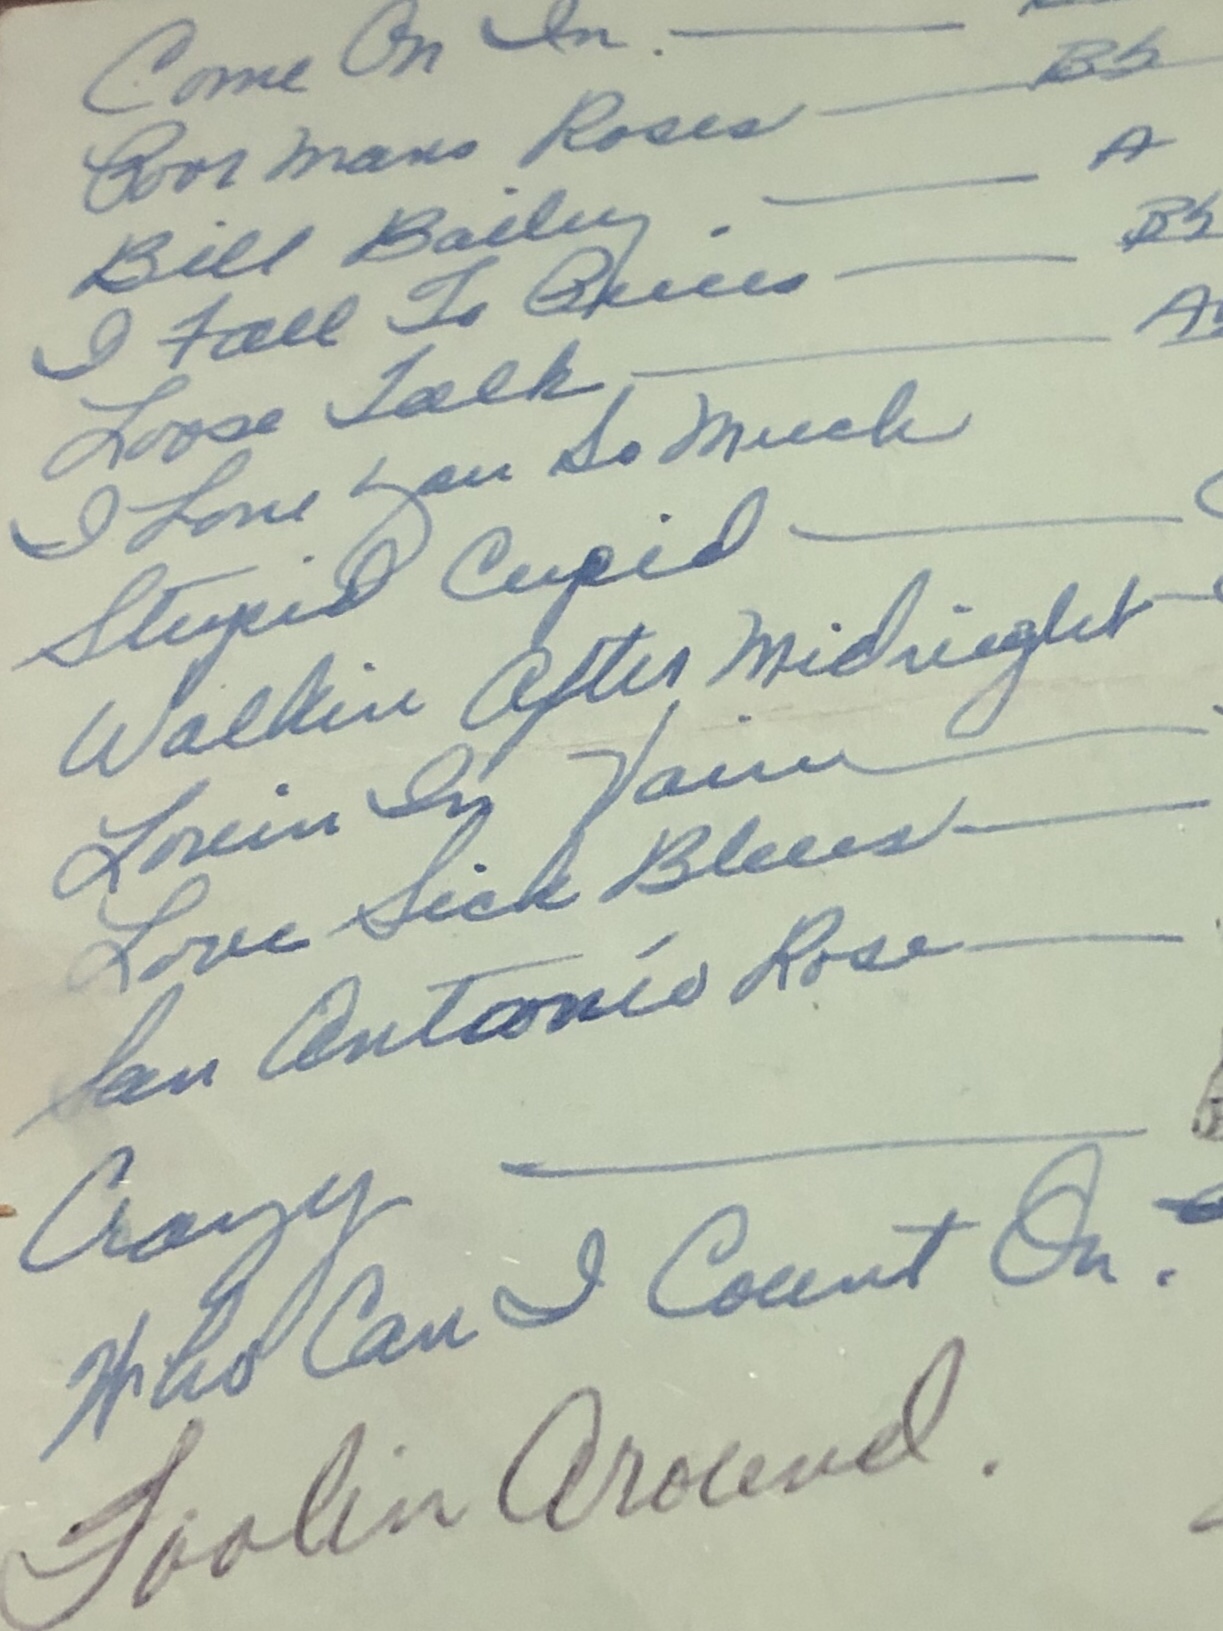 Come On In. —
Poor mans Roses — Bb
Bill Bailey. — A
I Fall To Pieces — Bb
Loose Talk — A
I Love you So Much
Stupid Cupid —
Walkin After Midnight —
Lovein In Vain —
Love Sick Blues —
San Antonio Rose —
Crazy —
Who Can I Count On.
Foolin Around.